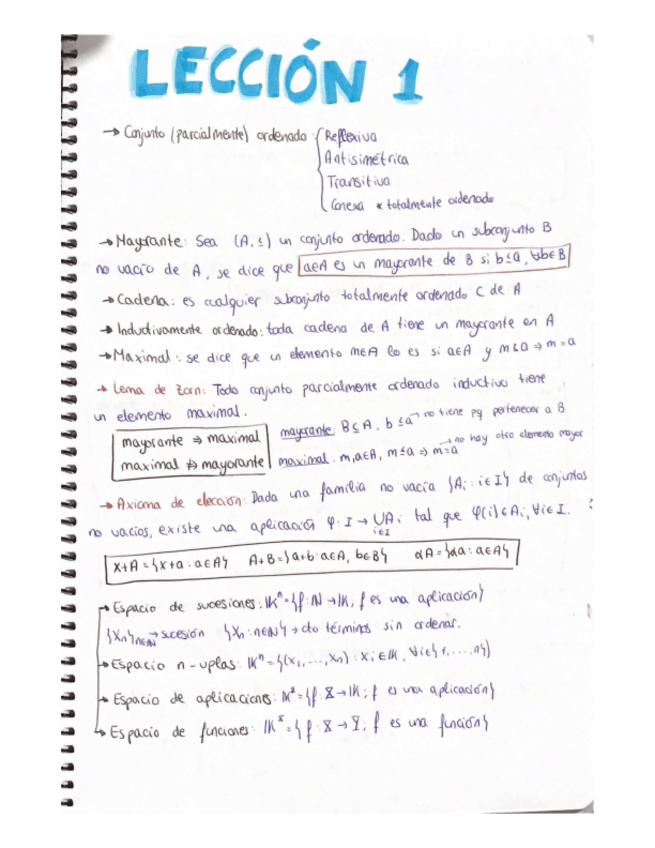 LECCIÓN 1
→ Conjunto (parcialmente) ordenado: { Reflexiva
Antisimétrica
Transitiva
Conexa * totalmente ordenado
→ Mayorante: Sea (A, ≤) un conjunto ordenado. Dado un subconjunto B
no vacío de A, se dice que a∈A es un mayorante de B si b≤a, ∀b∈B
→ Cadena: es cualquier subconjunto totalmente ordenado C de A
→ Inductivamente ordenado: toda cadena de A tiene un mayorante en A
→ Maximal: se dice que un elemento m∈A lo es si a∈A y m≤a ⇒ m=a
→ Lema de Zorn: Todo conjunto parcialmente ordenado inductivo tiene
un elemento maximal.
mayorante ⇒ maximal
maximal ⇏ mayorante
mayorante: B⊆A, b≤a → no tiene pq pertenecer a B
maximal: m,a∈A, m≤a ⇒ m=a → no hay otro elemento mayor
→ Axioma de elección: Dada una familia no vacía {Ai: i∈I} de conjuntos
no vacíos, existe una aplicación φ: I → ∪Ai tal que φ(i)∈Ai, ∀i∈I.
i∈I
x+A = {x+a: a∈A} A+B = {a+b: a∈A, b∈B} αA = {αa: a∈A}
→ Espacio de sucesiones: 𝕂ᴺ = {f: ℕ→𝕂; f es una aplicación}
{Xn}n∈ℕ → sucesión {Xn: n∈ℕ} → cto términos sin ordenar.
→ Espacio n-uplas: 𝕂ⁿ = {(x₁, ..., xn): xi∈𝕂, ∀i∈{1, ..., n}}
→ Espacio de aplicaciones: 𝕂ˣ = {f: X→𝕂; f es una aplicación}
→ Espacio de funciones: 𝕂ˣ = {f: X→Y; f es una función}